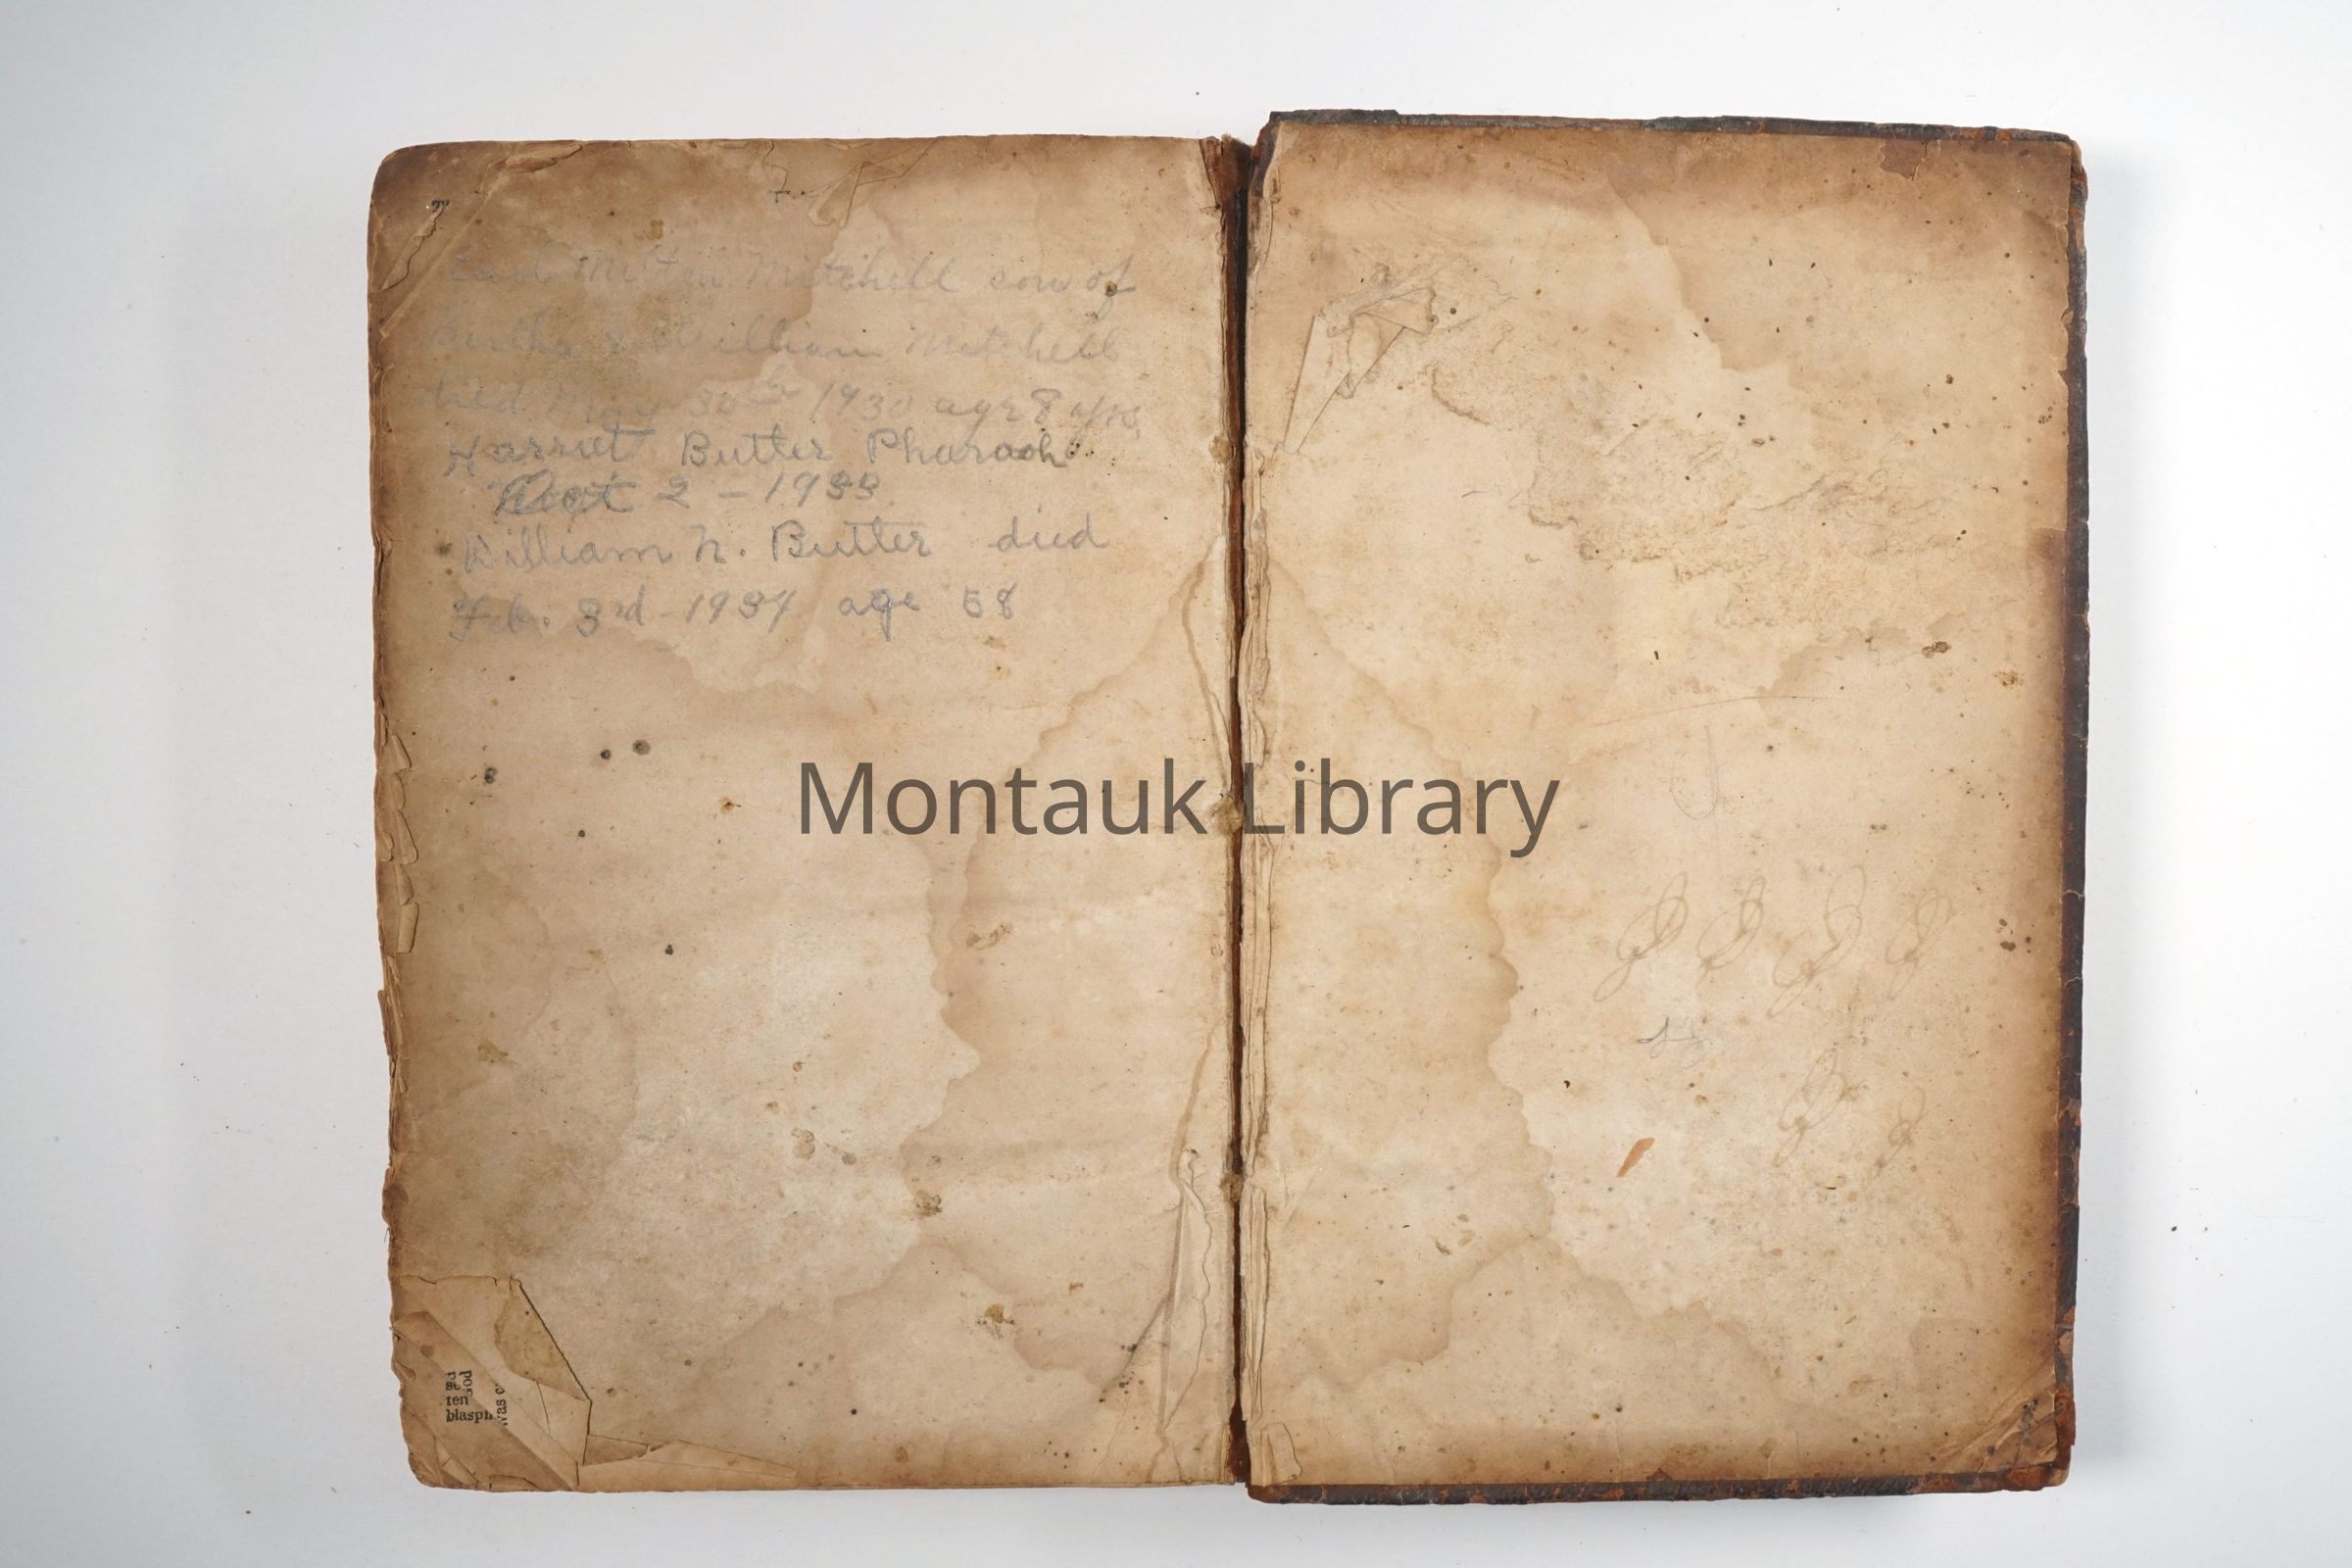 Earl Milton Mitchell son of
Bertha & William Mitchell
died May 30th 1930 age 8 yrs,
Harriet Butler Pharaoh
Oct 2 - 1933
William N. Butler died
Feb. 3rd - 1934 age 58
Montauk Library
ten God
blasph was